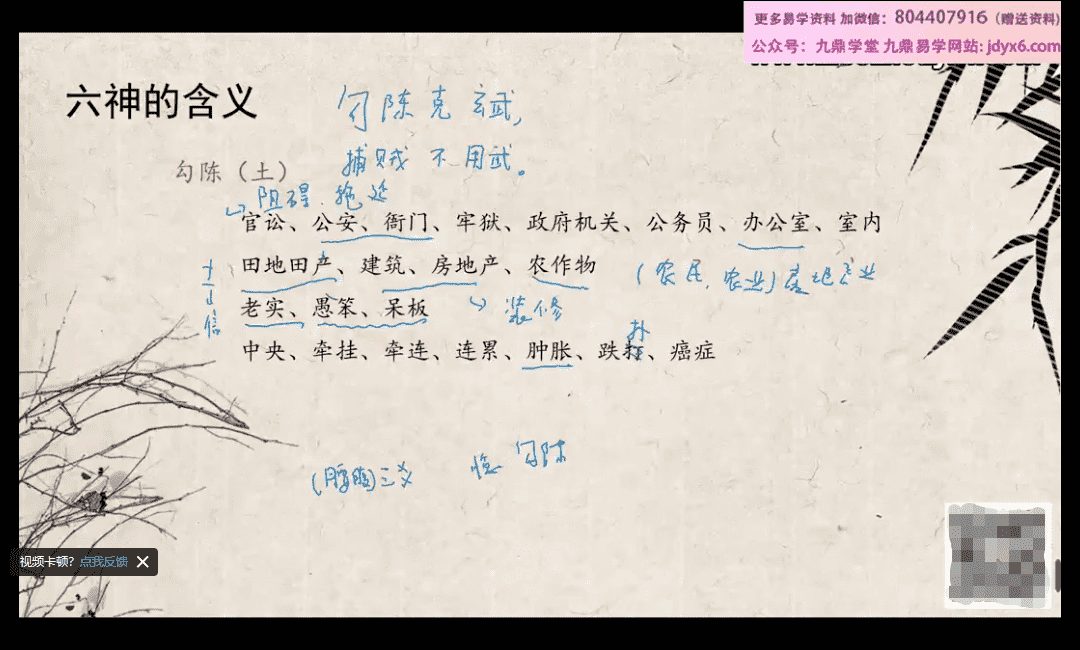 更多易学资料 加微信：804407916（赠送资料）
公众号：九鼎学堂 九鼎易学网站：jdyx6.com
六神的含义
勾陈克玄武，
捕贼不用武。
勾陈（土）
阻碍、拖延
官讼、公安、衙门、牢狱、政府机关、公务员、办公室、室内
田地田产、建筑、房地产、农作物
（农民、农业）房地产业
土
信
老实、愚笨、呆板
装修
扑
中央、牵挂、牵连、连累、肿胀、跌打、癌症
勾陈
视频卡顿？点我反馈